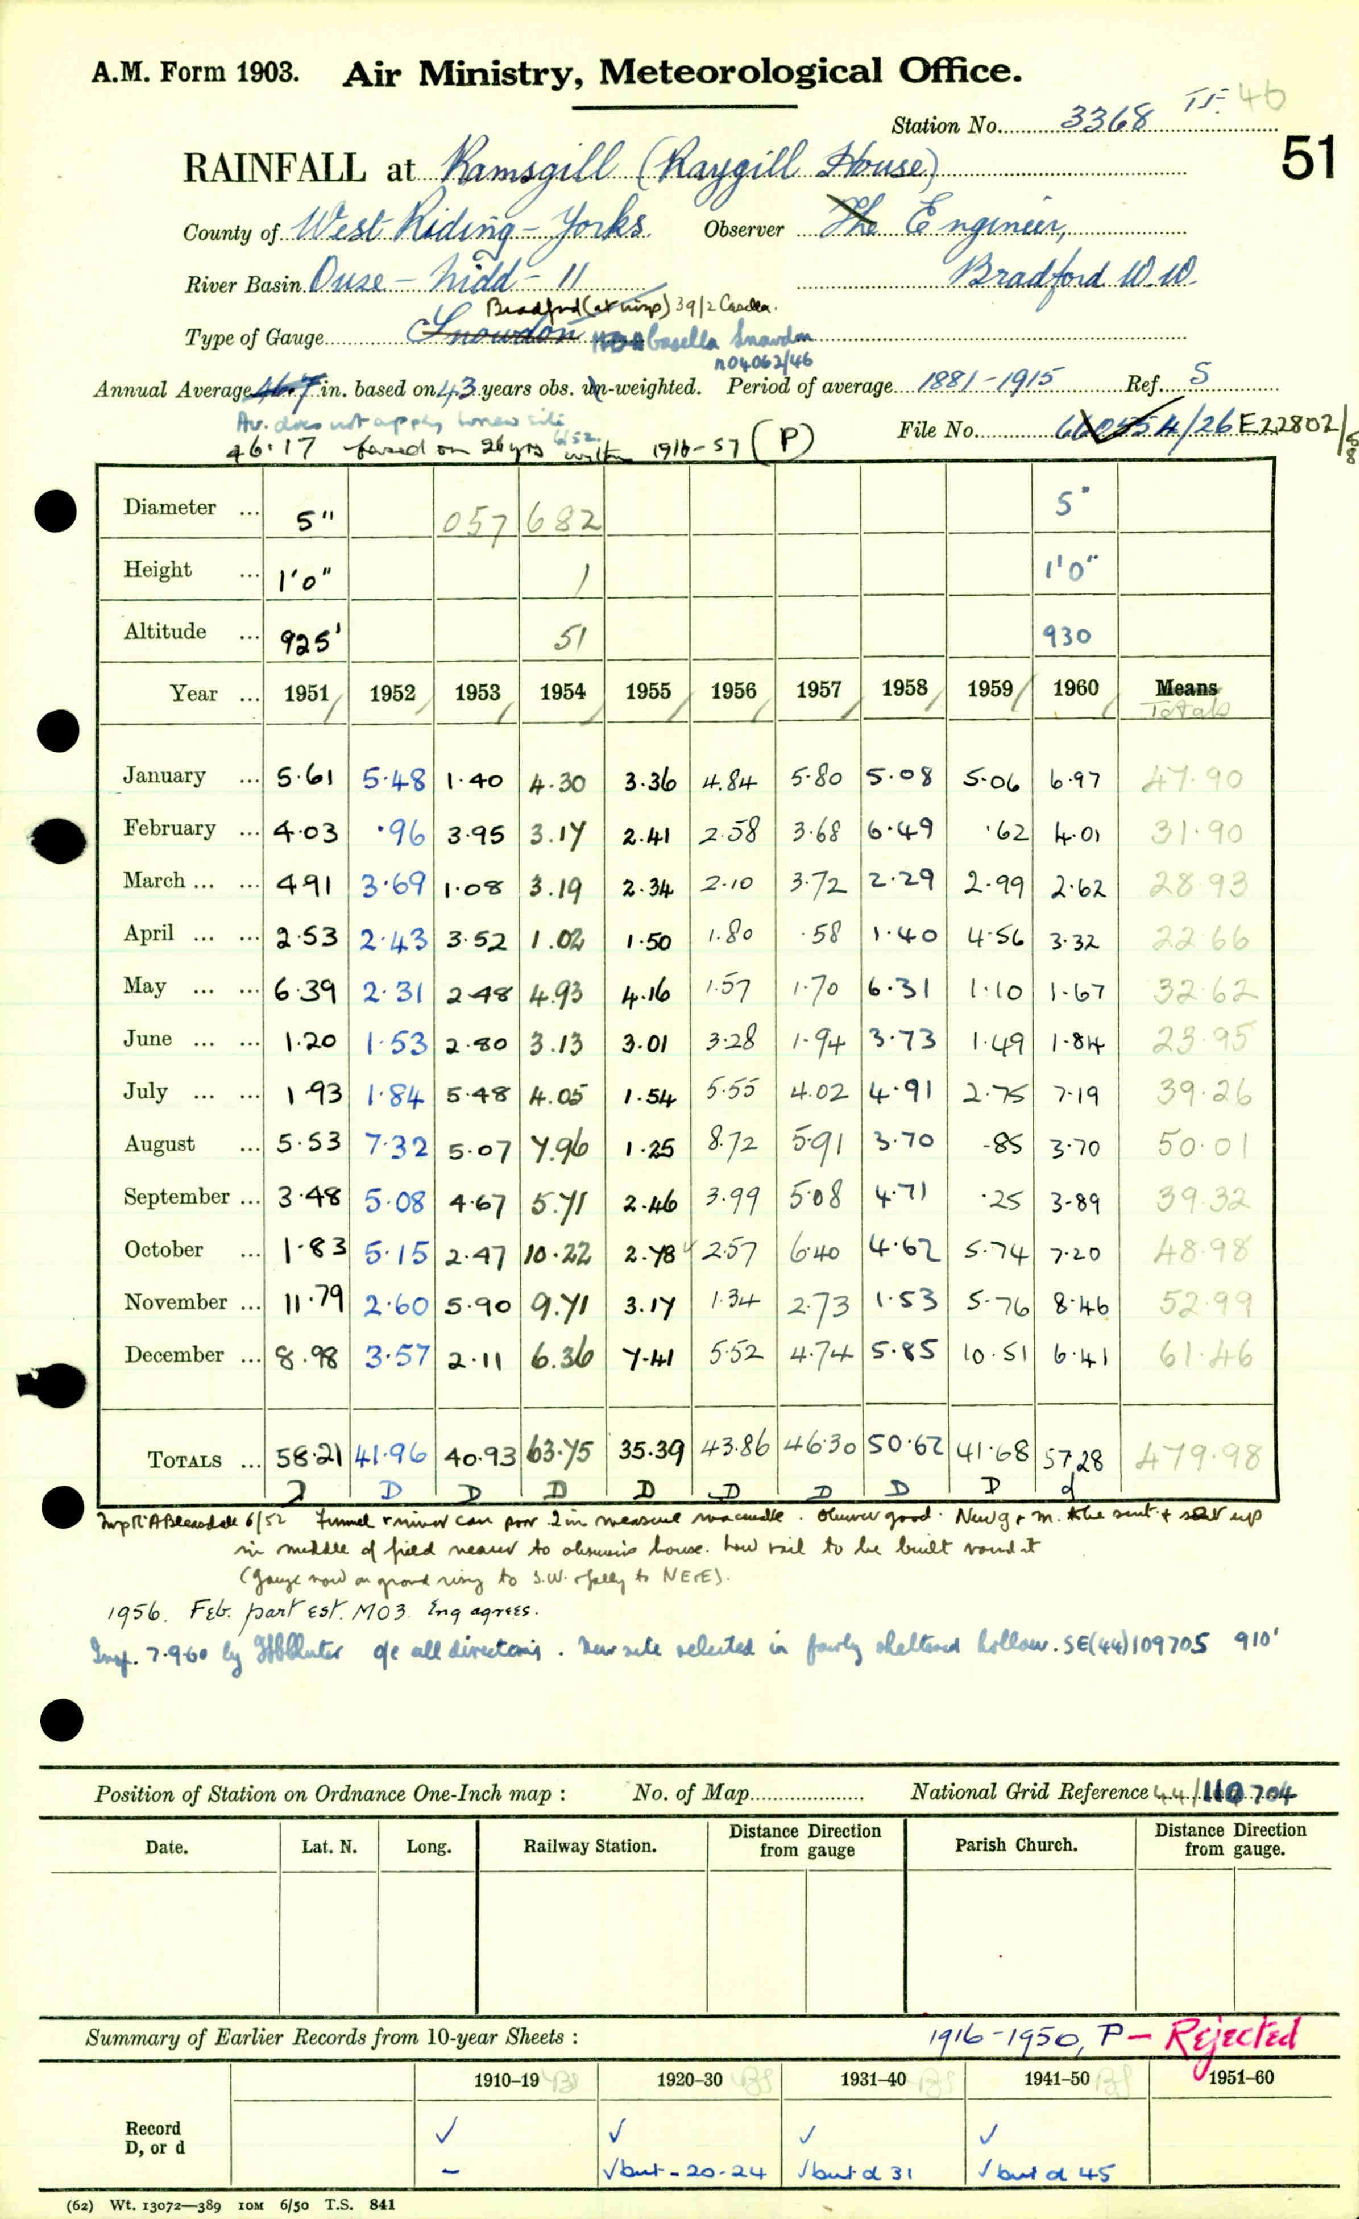 A.M. Form 1903. Air Ministry, Meteorological Office.
Station No. 3368 T.F. 46
51
RAINFALL at Ramsgill (Raygill House)
County of West Riding - Yorks. Observer The Engineer,
River Basin Ouse - Nidd - 11 Bradford W.W.
Bradford (at insp) 39/2 Casella.
Type of Gauge Snowdon Casella Snowdon
no 4062/46
Annual Average 46.7 in. based on 43 years obs. Un-weighted. Period of average 1881-1915 Ref. S
Av. does not apply to new site 6/52.
File No. /26 E22802/58
46.17 based on 26 yrs within 1916-57 (P)
Diameter ... 5" 057 682 5"
Height ... 1'0" 1 1'0"
Altitude ... 925' 51 930
Year ... 1951 1952 1953 1954 1955 1956 1957 1958 1959 1960 Means
Totals
January ... 5.61 5.48 1.40 4.30 3.36 4.84 5.80 5.08 5.06 6.97 47.90
February ... 4.03 .96 3.95 3.17 2.41 2.58 3.68 6.49 .62 4.01 31.90
March ... ... 4.91 3.69 1.08 3.19 2.34 2.10 3.72 2.29 2.99 2.62 28.93
April ... ... 2.53 2.43 3.52 1.02 1.50 1.80 .58 1.40 4.56 3.32 22.66
May ... ... 6.39 2.31 2.48 4.93 4.16 1.57 1.70 6.31 1.10 1.67 32.62
June ... ... 1.20 1.53 2.80 3.13 3.01 3.28 1.94 3.73 1.49 1.84 23.95
July ... ... 1.93 1.84 5.48 4.05 1.54 5.55 4.02 4.91 2.75 7.19 39.26
August ... 5.53 7.32 5.07 7.96 1.25 8.72 5.91 3.70 .85 3.70 50.01
September ... 3.48 5.08 4.67 5.71 2.46 3.99 5.08 4.71 .25 3.89 39.32
October ... 1.83 5.15 2.47 10.22 2.78 2.57 6.40 4.62 5.74 7.20 48.98
November ... 11.79 2.60 5.90 9.71 3.17 1.34 2.73 1.53 5.76 8.46 52.99
December ... 8.98 3.57 2.11 6.36 7.41 5.52 4.74 5.85 10.51 6.41 61.46
TOTALS ... 58.21 41.96 40.93 63.75 35.39 43.86 46.30 50.62 41.68 57.28 479.98
D D D D D D D D D d
Insp. R A Bleasdale 6/52 Funnel & inner can poor. 2 in measure inaccurate. Observer good. New g & m. to be sent & set up
in middle of field nearer to observer's house. Low rail to be built round it
(Gauge now on ground rising to S.W. & falling to NE&E).
1956. Feb. part est. MO3. Eng agrees.
Insp. 7.9.60 by o/e all directions. New site selected in fairly sheltered hollow. SE(44)109705 910'
Position of Station on Ordnance One-Inch map : No. of Map National Grid Reference 44/110704
Date. Lat. N. Long. Railway Station. Distance Direction from gauge Parish Church. Distance Direction from gauge.
Summary of Earlier Records from 10-year Sheets : 1916-1950, P - Rejected
1910-19 BS 1920-30 BS 1931-40 BS 1941-50 BS 1951-60
Record ✓ ✓ ✓ ✓
D, or d - ✓ but - 20-24 ✓ but d 31 ✓ but d 45
(62) Wt. 13072—389 10M 6/50 T.S. 841